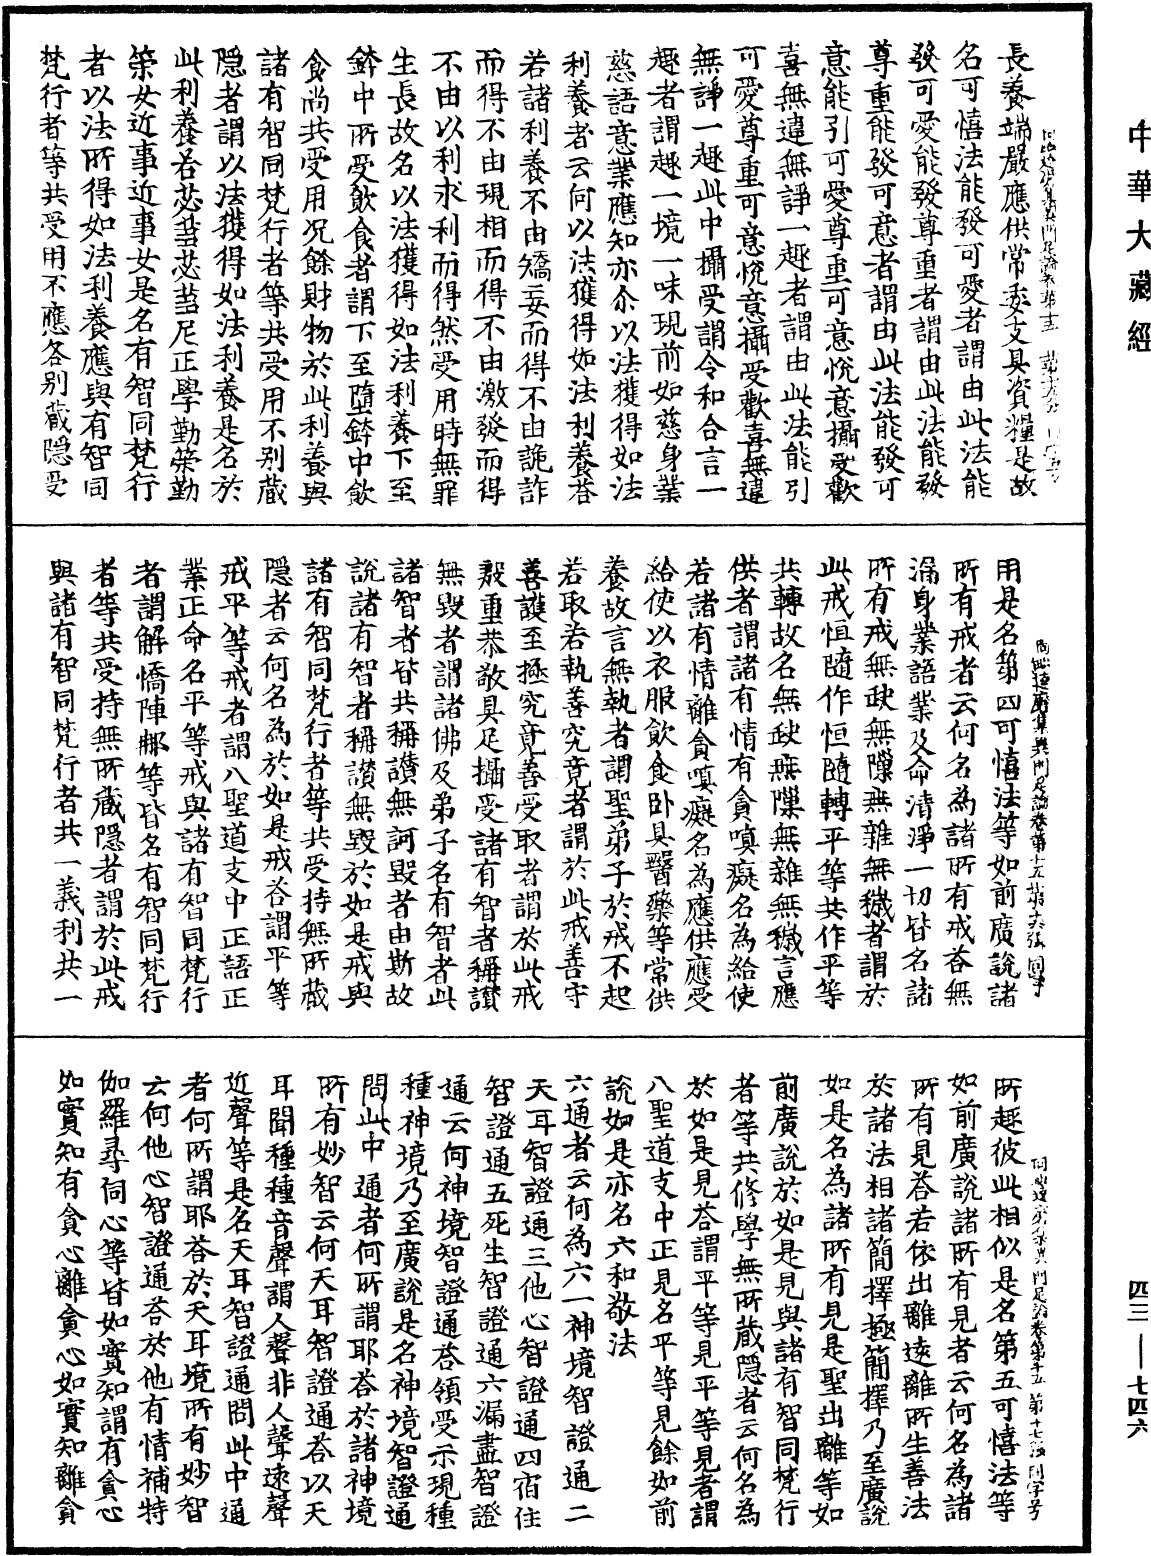 中華大藏經
長養端嚴應供常委支具資糧是故
名可憙法能發可愛者謂由此法能
發可愛能發尊重者謂由此法能發
尊重能發可意者謂由此法能發可
意能引可愛尊重可意悅意攝受歡
喜無違無諍一趣者謂由此法能引
可愛尊重可意悅意攝受歡喜無違
無諍一趣此中攝受謂令和合言一
趣者謂趣一境一味現前如慈身業
慈語意業應知亦介以法獲得如法
利養者云何以法獲得如法利養荅
若諸利養不由矯妄而得不由詭詐
而得不由現相而得不由激發而得
不由以利求利而得然受用時無罪
生長故名以法獲得如法利養下至
鉢中所受飲食者謂下至墮鉢中飲
食尚共受用況餘財物於此利養與
諸有智同梵行者等共受用不別藏
隱者謂以法獲得如法利養是名於
此利養若苾芻苾芻尼正學勤策勤
策女近事近事女是名有智同梵行
者以法所得如法利養應與有智同
梵行者等共受用不應各別藏隱受
用是名第四可憙法等如前廣說諸
所有戒者云何名為諸所有戒荅無
漏身業語業及命清淨一切皆名諸
所有戒無缺無隙無雜無穢者謂於
此戒恒隨作恒隨轉平等共作平等
共轉故名無缺無隙無雜無穢言應
供者謂諸有情有貪嗔癡名為給使
若諸有情離貪嗔癡名為應供應受
給使以衣服飲食臥具醫藥等常供
養故言無執者謂聖弟子於戒不起
若取若執善究竟者謂於此戒善守
善護至極究竟善受取者謂於此戒
殷重恭敬具足攝受諸有智者稱讚
無毀者謂諸佛及弟子名有智者此
諸智者皆共稱讚無訶毀者由斯故
說諸有智者稱讚無毀於如是戒與
諸有智同梵行者等共受持無所藏
隱者云何名為於如是戒荅謂平等
戒平等戒者謂八聖道支中正語正
業正命名平等戒與諸有智同梵行
者謂解憍陣那等皆名有智同梵行
者等共受持無所藏隱者謂於此戒
與諸有智同梵行者共一義利共一
所趣彼此相似是名第五可憙法等
如前廣說諸所有見者云何名為諸
所有見荅若依出離遠離所生善法
於諸法相諸簡擇極簡擇乃至廣說
如是名為諸所有見是聖出離等如
前廣說於如是見與諸有智同梵行
者等共修學無所藏隱者云何名為
於如是見荅謂平等見平等見者謂
八聖道支中正見名平等見餘如前
說如是亦名六和敬法
六通者云何為六一神境智證通二
天耳智證通三他心智證通四宿住
智證通五死生智證通六漏盡智證
通云何神境智證通荅領受示現種
種神境乃至廣說是名神境智證通
問此中通者何所謂耶荅於諸神境
所有妙智云何天耳智證通荅以天
耳聞種種音聲謂人聲非人聲遠聲
近聲等是名天耳智證通問此中通
者何所謂耶荅於天耳境所有妙智
云何他心智證通荅於他有情補特
伽羅尋伺心等皆如實知謂有貪心
如實知有貪心離貪心如實知離貪
四三—七四六